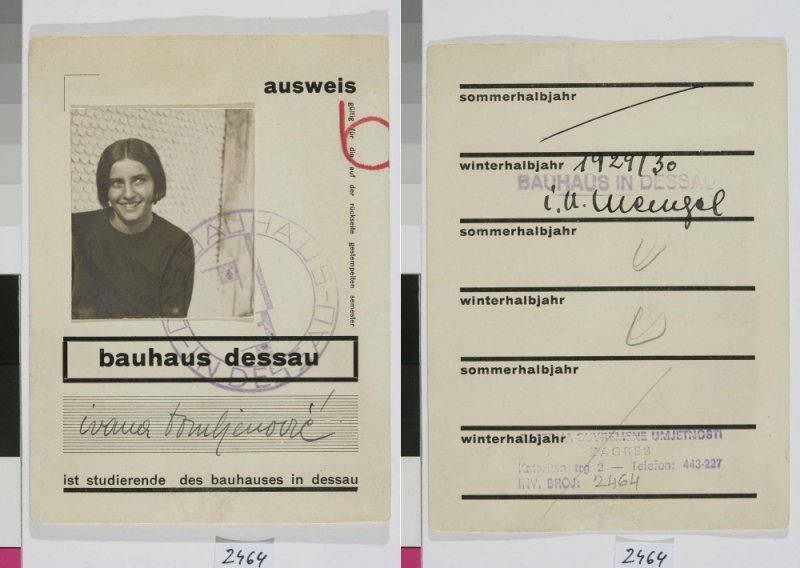 ausweis
gültig für die auf der rückseite gestempelten semester
b
BAUHAUS-DESSAU
bauhaus dessau
ivana tomljenović
ist studierende des bauhauses in dessau
2464
sommerhalbjahr
winterhalbjahr 1929/30
BAUHAUS IN DESSAU
i.A.
sommerhalbjahr
winterhalbjahr
sommerhalbjahr
winterhalbjahr SUVREMENE UMJETNOSTI
ZAGREB
Katarinin trg 2 — Telefon: 443-227
INV. BROJ: 2464
2464